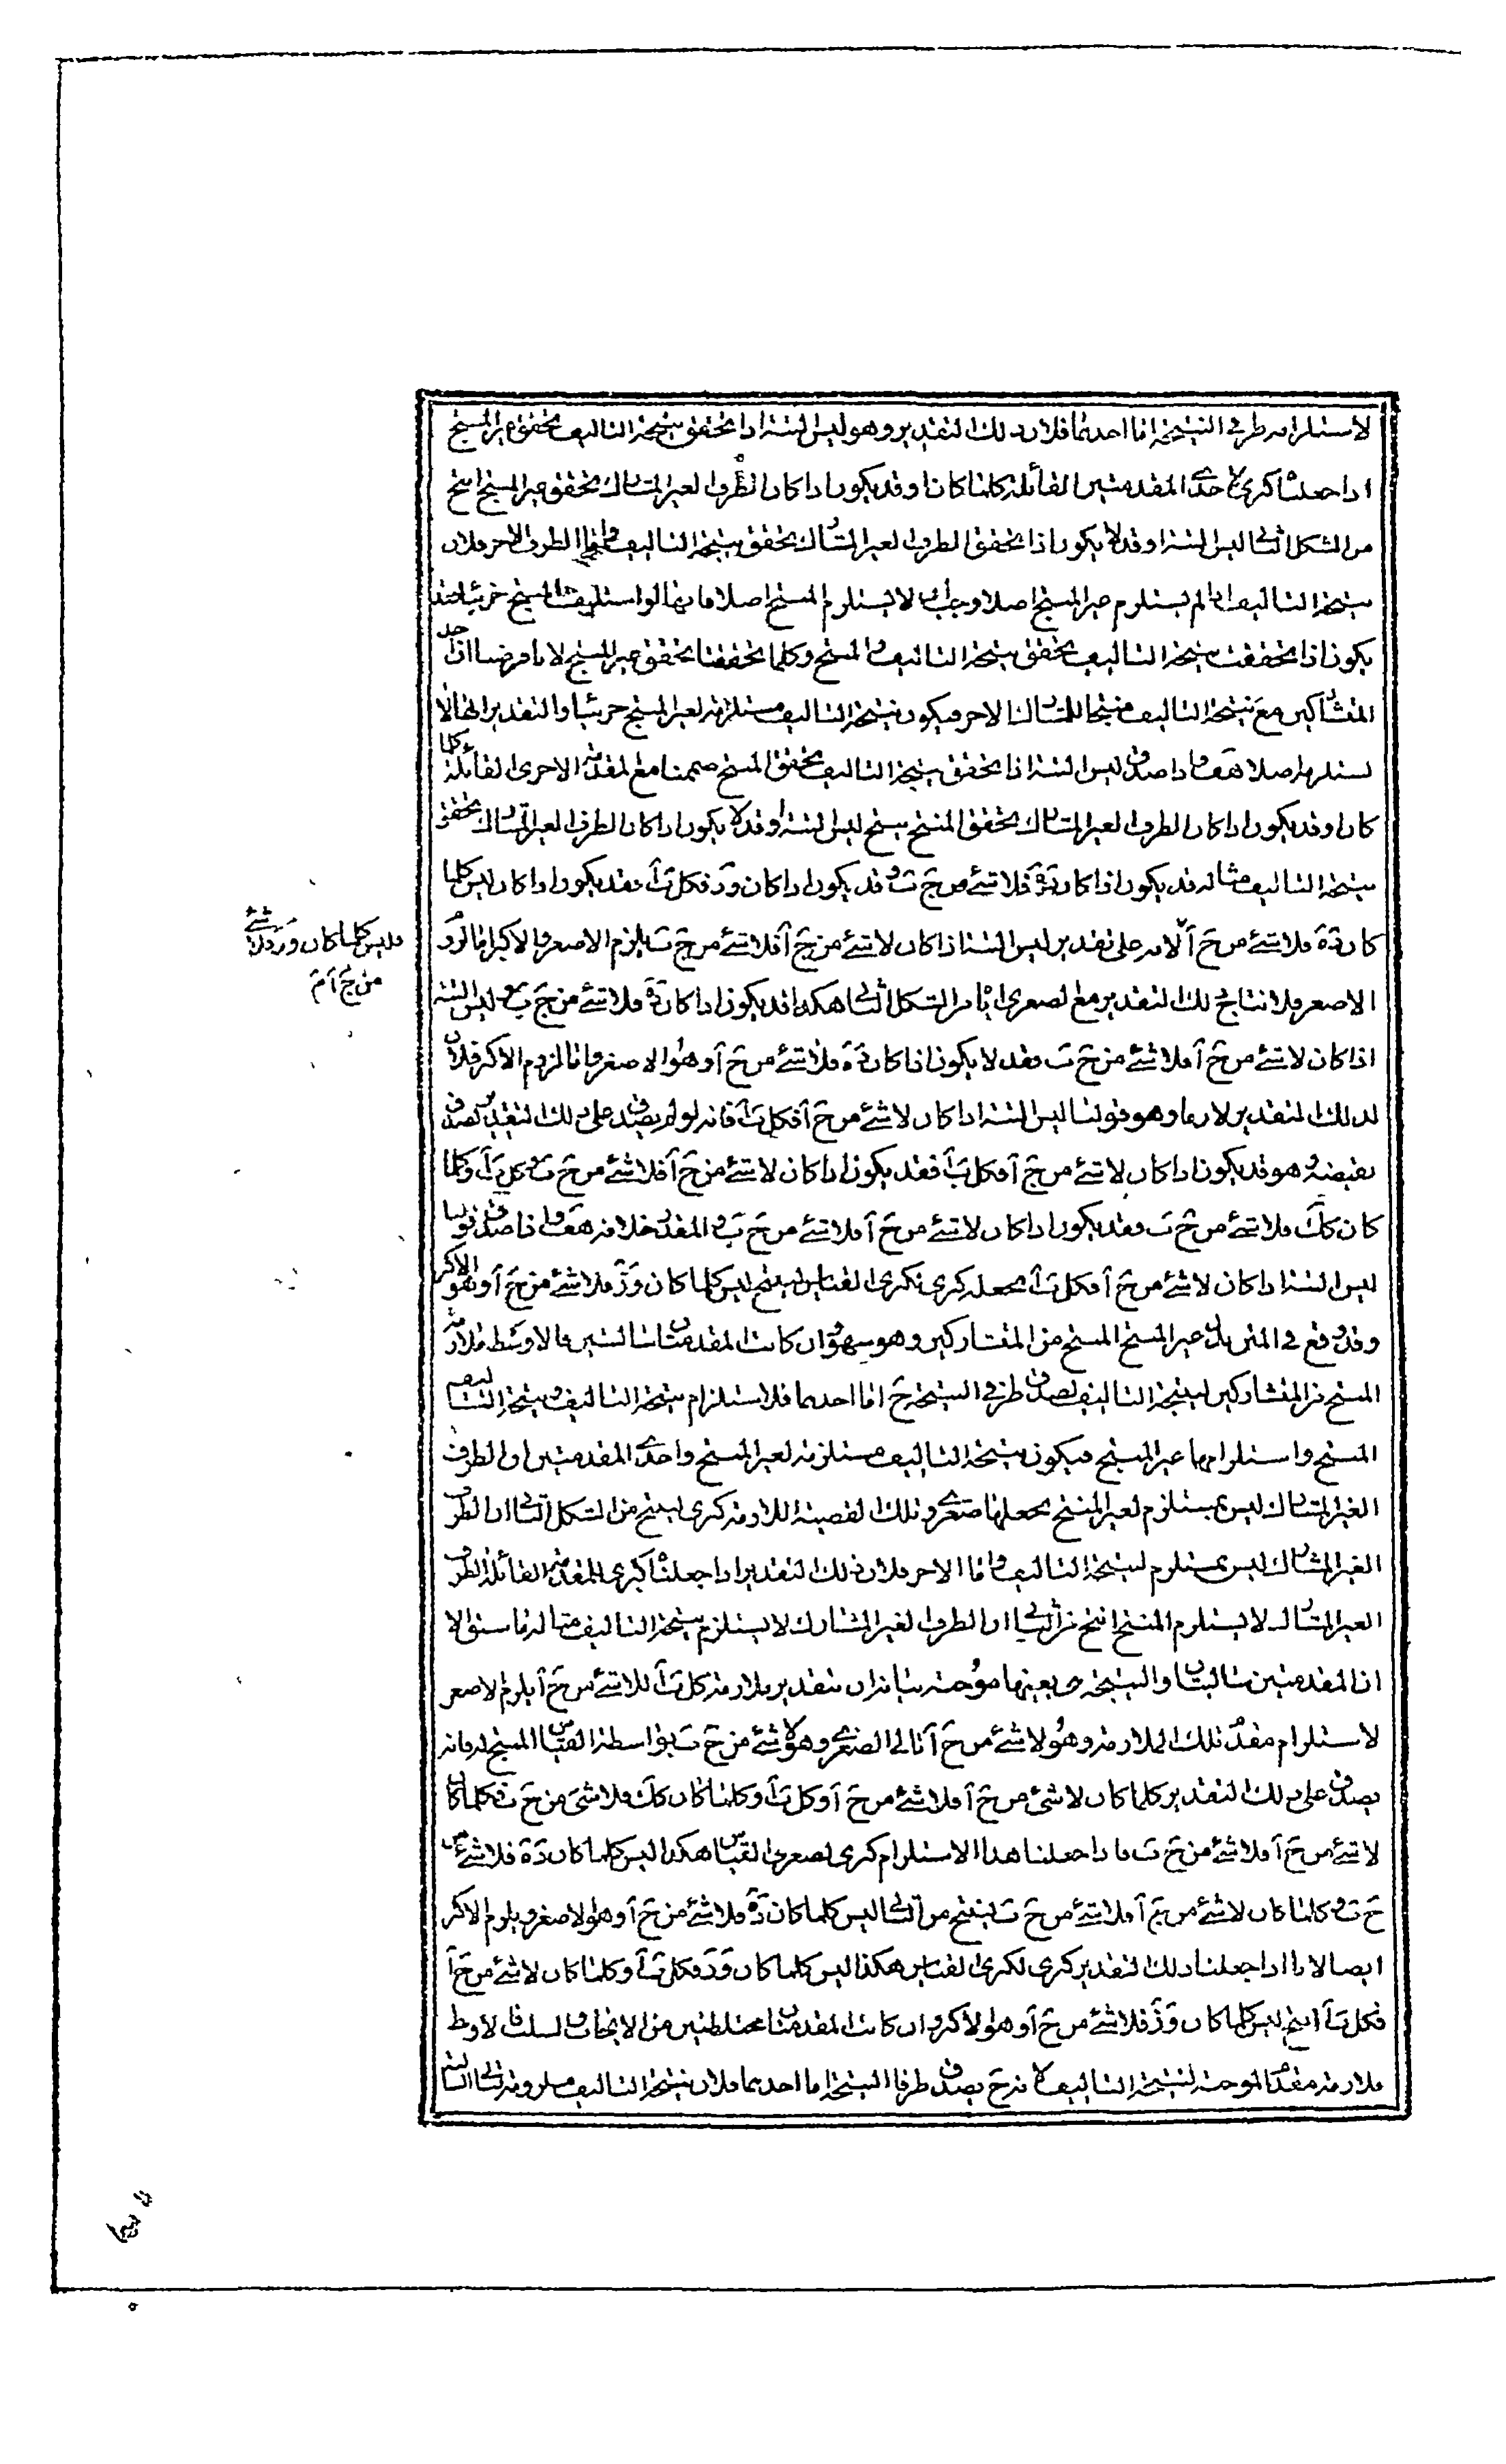 لاستلزامه طرفى النتيجة اما احدهما فلان ذلك التقدير وهو ليس البتة اذا تحقق نتيجة التاليف تحقق عين المنتج
اذا جعلناه كبرى لاحدى المقدمتين القائلة كلما كان او قد يكون اذا كان الطرف الغير المشارك تحقق غير المنتج انتج
من الشكل الثانى ليس البتة او قد لا يكون اذا تحقق الطرف الغير المشارك تحقق نتيجة التاليف واما الطرف الاخر فلان
نتيجة التاليف لم يستلزم عين المنتج اصلا وجب ان لا يستلزم المنتج اصلا فانها لو استلزمت المنتج جزئيا
يكون اذا تحققت نتيجة التاليف تحقق نتيجة التاليف والمنتج وكلما تحققتا تحقق عين المنتج لانا فرضنا ان احد
المتشاركين مع نتيجة التاليف منتجا للمشارك الاخر فيكون نتيجة التاليف مستلزمة لعين المنتج جزئيا والتقدير انها لا
تستلزمه اصلا هف واذا صدق ليس البتة اذا تحقق نتيجة التاليف تحقق المنتج ضممنا مع المقدمة الاخرى القائلة كلما
كان او قد يكون اذا كان الطرف الغير المشارك تحقق المنتج ينتج ليس البتة او قد لا يكون اذا كان الطرف الغير المشارك تحقق
نتيجة التاليف مثاله قد يكون اذا كان دَهَ فلا شئ من جَ بَ وقد يكون اذا كان وَزَ فكل بَ اَ فقد يكون اذا كان ليس كلما
كان دَهَ فلا شئ من جَ اَ لانه على تقدير ليس البتة اذا كان لا شئ من جَ اَ فلا شئ من جَ بَ يلزم الاصغر والاكبر اما لزوم
الاصغر فلانتاج ذلك التقدير مع الصغرى من الشكل الثانى هكذا قد يكون اذا كان دَهَ فلا شئ من جَ بَ وليس البتة
اذا كان لا شئ من جَ اَ فلا شئ من جَ بَ فقد لا يكون اذا كان دَهَ فلا شئ من جَ اَ وهو الاصغر واما لزوم الاكبر فلان
لذلك التقدير لازما وهو قولنا ليس البتة اذا كان لا شئ من جَ اَ فكل بَ اَ فانه لو لم يصدق على ذلك التقدير لصدق
نقيضه وهو قد يكون اذا كان لا شئ من جَ اَ فكل بَ اَ فقد يكون اذا كان لا شئ من جَ اَ فلا شئ من جَ اَ وكل بَ اَ وكلما
كان كك فلا شئ من جَ بَ فقد يكون اذا كان لا شئ من جَ اَ فلا شئ من جَ بَ والمقدر خلافه هف واذا صدق قولنا
ليس البتة اذا كان لا شئ من جَ اَ فكل بَ اَ نجعله كبرى لكبرى القياس لينتج ليس كلما كان وَزَ فلا شئ من جَ اَ وهو الاكبر
وقد وقع فى المتن بدل عين المنتج المنتج من المتشاركين وهو سهو وان كانت المقدمتان سالبتين فالاوسط ملازمة
المنتج من المتشاركين لنتيجة التاليف لصدق طرفى النتيجة ح اما احدهما فلاستلزام نتيجة التاليف ونتيجة التاليف
المنتج واستلزامها عين المنتج فيكون نتيجة التاليف مستلزمة لعين المنتج واحدى المقدمتين ان الطرف
الغير المشارك ليس بمستلزم لعين المنتج نجعلها صغرى وتلك القضية اللازمة كبرى لينتج من الشكل الثانى ان الطرف
الغير المشارك ليس بمستلزم لنتيجة التاليف واما الاخر فلان ذلك التقدير اذا جعلناه كبرى للمقدمة القائلة الطرف
الغير المشارك لا يستلزم المنتج انتج من الثانى ان الطرف الغير المشارك لا يستلزم نتيجة التاليف مثاله ما سبق الا
ان المقدمتين سالبتان والنتيجة هى بعينها موجبة بيانه ان بتقدير ملازمة كل بَ اَ للا شئ من جَ اَ يلزم الاصغر
لاستلزام مقدم تلك الملازمة وهو لا شئ من جَ اَ تالى الصغرى وهو لا شئ من جَ بَ بواسطة القياس المنتج له فانه
يصدق على ذلك التقدير كلما كان لا شئ من جَ اَ فلا شئ من جَ اَ وكل بَ اَ وكلما كان كك فلا شئ من جَ بَ فكلما كان
لا شئ من جَ اَ فلا شئ من جَ بَ فاذا جعلنا هذا الاستلزام كبرى لصغرى القياس هكذا ليس كلما كان دَهَ فلا شئ من
جَ بَ وكلما كان لا شئ من جَ اَ فلا شئ من جَ بَ لينتج من الثانى ليس كلما كان دَهَ فلا شئ من جَ اَ وهو الاصغر ويلزم الاكبر
ايضا لانا اذا جعلنا ذلك التقدير كبرى لكبرى القياس هكذا ليس كلما كان وَزَ فكل بَ اَ وكلما كان لا شئ من جَ اَ
فكل بَ اَ انتج ليس كلما كان وَزَ فلا شئ من جَ اَ وهو الاكبر وان كانت المقدمتان مختلطتين من الايجاب والسلب فالاوسط
ملازمة مقدم الموجبة لنتيجة التاليف لانه ح يصدق طرفا النتيجة اما احدهما فلان نتيجة التاليف ملزومة لتالى السالبة
فليس كلما كان وَزَ فلا شئ
من جَ اَ مَ